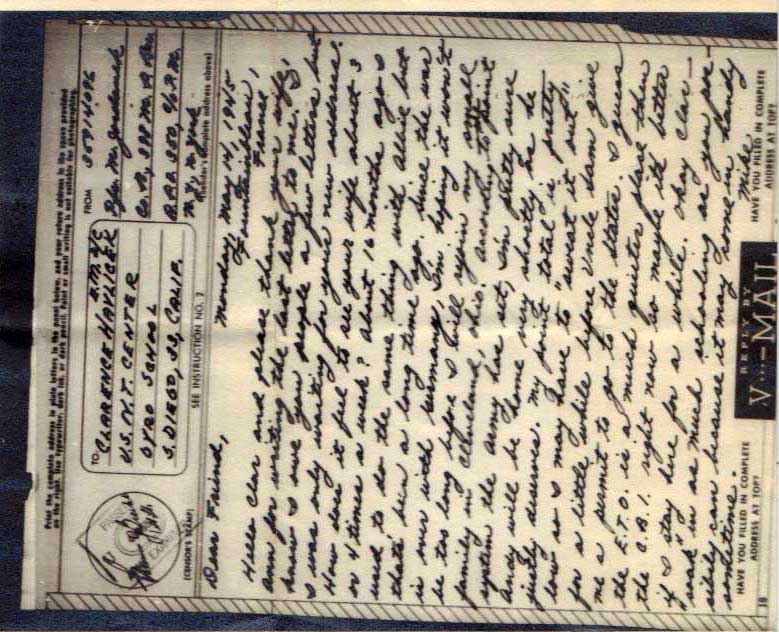 Print the complete address in plain letters in the panel below, and your return address in the space provided
on the right. Use typewriter, dark ink, or dark pencil. Faint or small writing is not suitable for photographing.
TO
CLARENCE HAVLICEK E.M. 2/C
U.S.N.T. CENTER
GYRO SCHOOL
S. DIEGO, 34, CALIF.
FROM
35914096
Pfc. M.
Co. A, 398
A.P.O. 350, c/o P.M.
N.Y., N. York
(Sender's complete address above)
(CENSOR'S STAMP)
SEE INSTRUCTION NO. 2
Monday, May 14, 1945
Fountainbleau,
France
Dear Friend,
Hello Clar and please thank your wife,
Ann for writing the last letter to me. I
know I owe you people a few letters but
I was only waiting for your new address.
How does it feel to see your wife about 3
or 4 times a week? About 16 months ago I
used to do the same thing with Allie but
that's been a long time ago. Since the war
is over with Germany, I'm hoping it won't
be too long before I will rejoin my small
family in Cleveland, Ohio. According to point
system the army has set, I'm pretty sure
Andy will be home very shortly as he
justly deserves. My point total is pretty
low so I may have to "sweat it out"
for a little while before Uncle Sam give
me a permit to go to the States. I guess
the E.T.O. is a much quieter place then
the C.B.I. right now so maybe it's better
if I stay here for a while. Okay Clar —
"soak" in as much schooling as you pos-
sibly can because it may come in handy
sometime.
Mike
HAVE YOU FILLED IN COMPLETE
ADDRESS AT TOP?
REPLY BY
V···—MAIL
HAVE YOU FILLED IN COMPLETE
ADDRESS AT TOP?